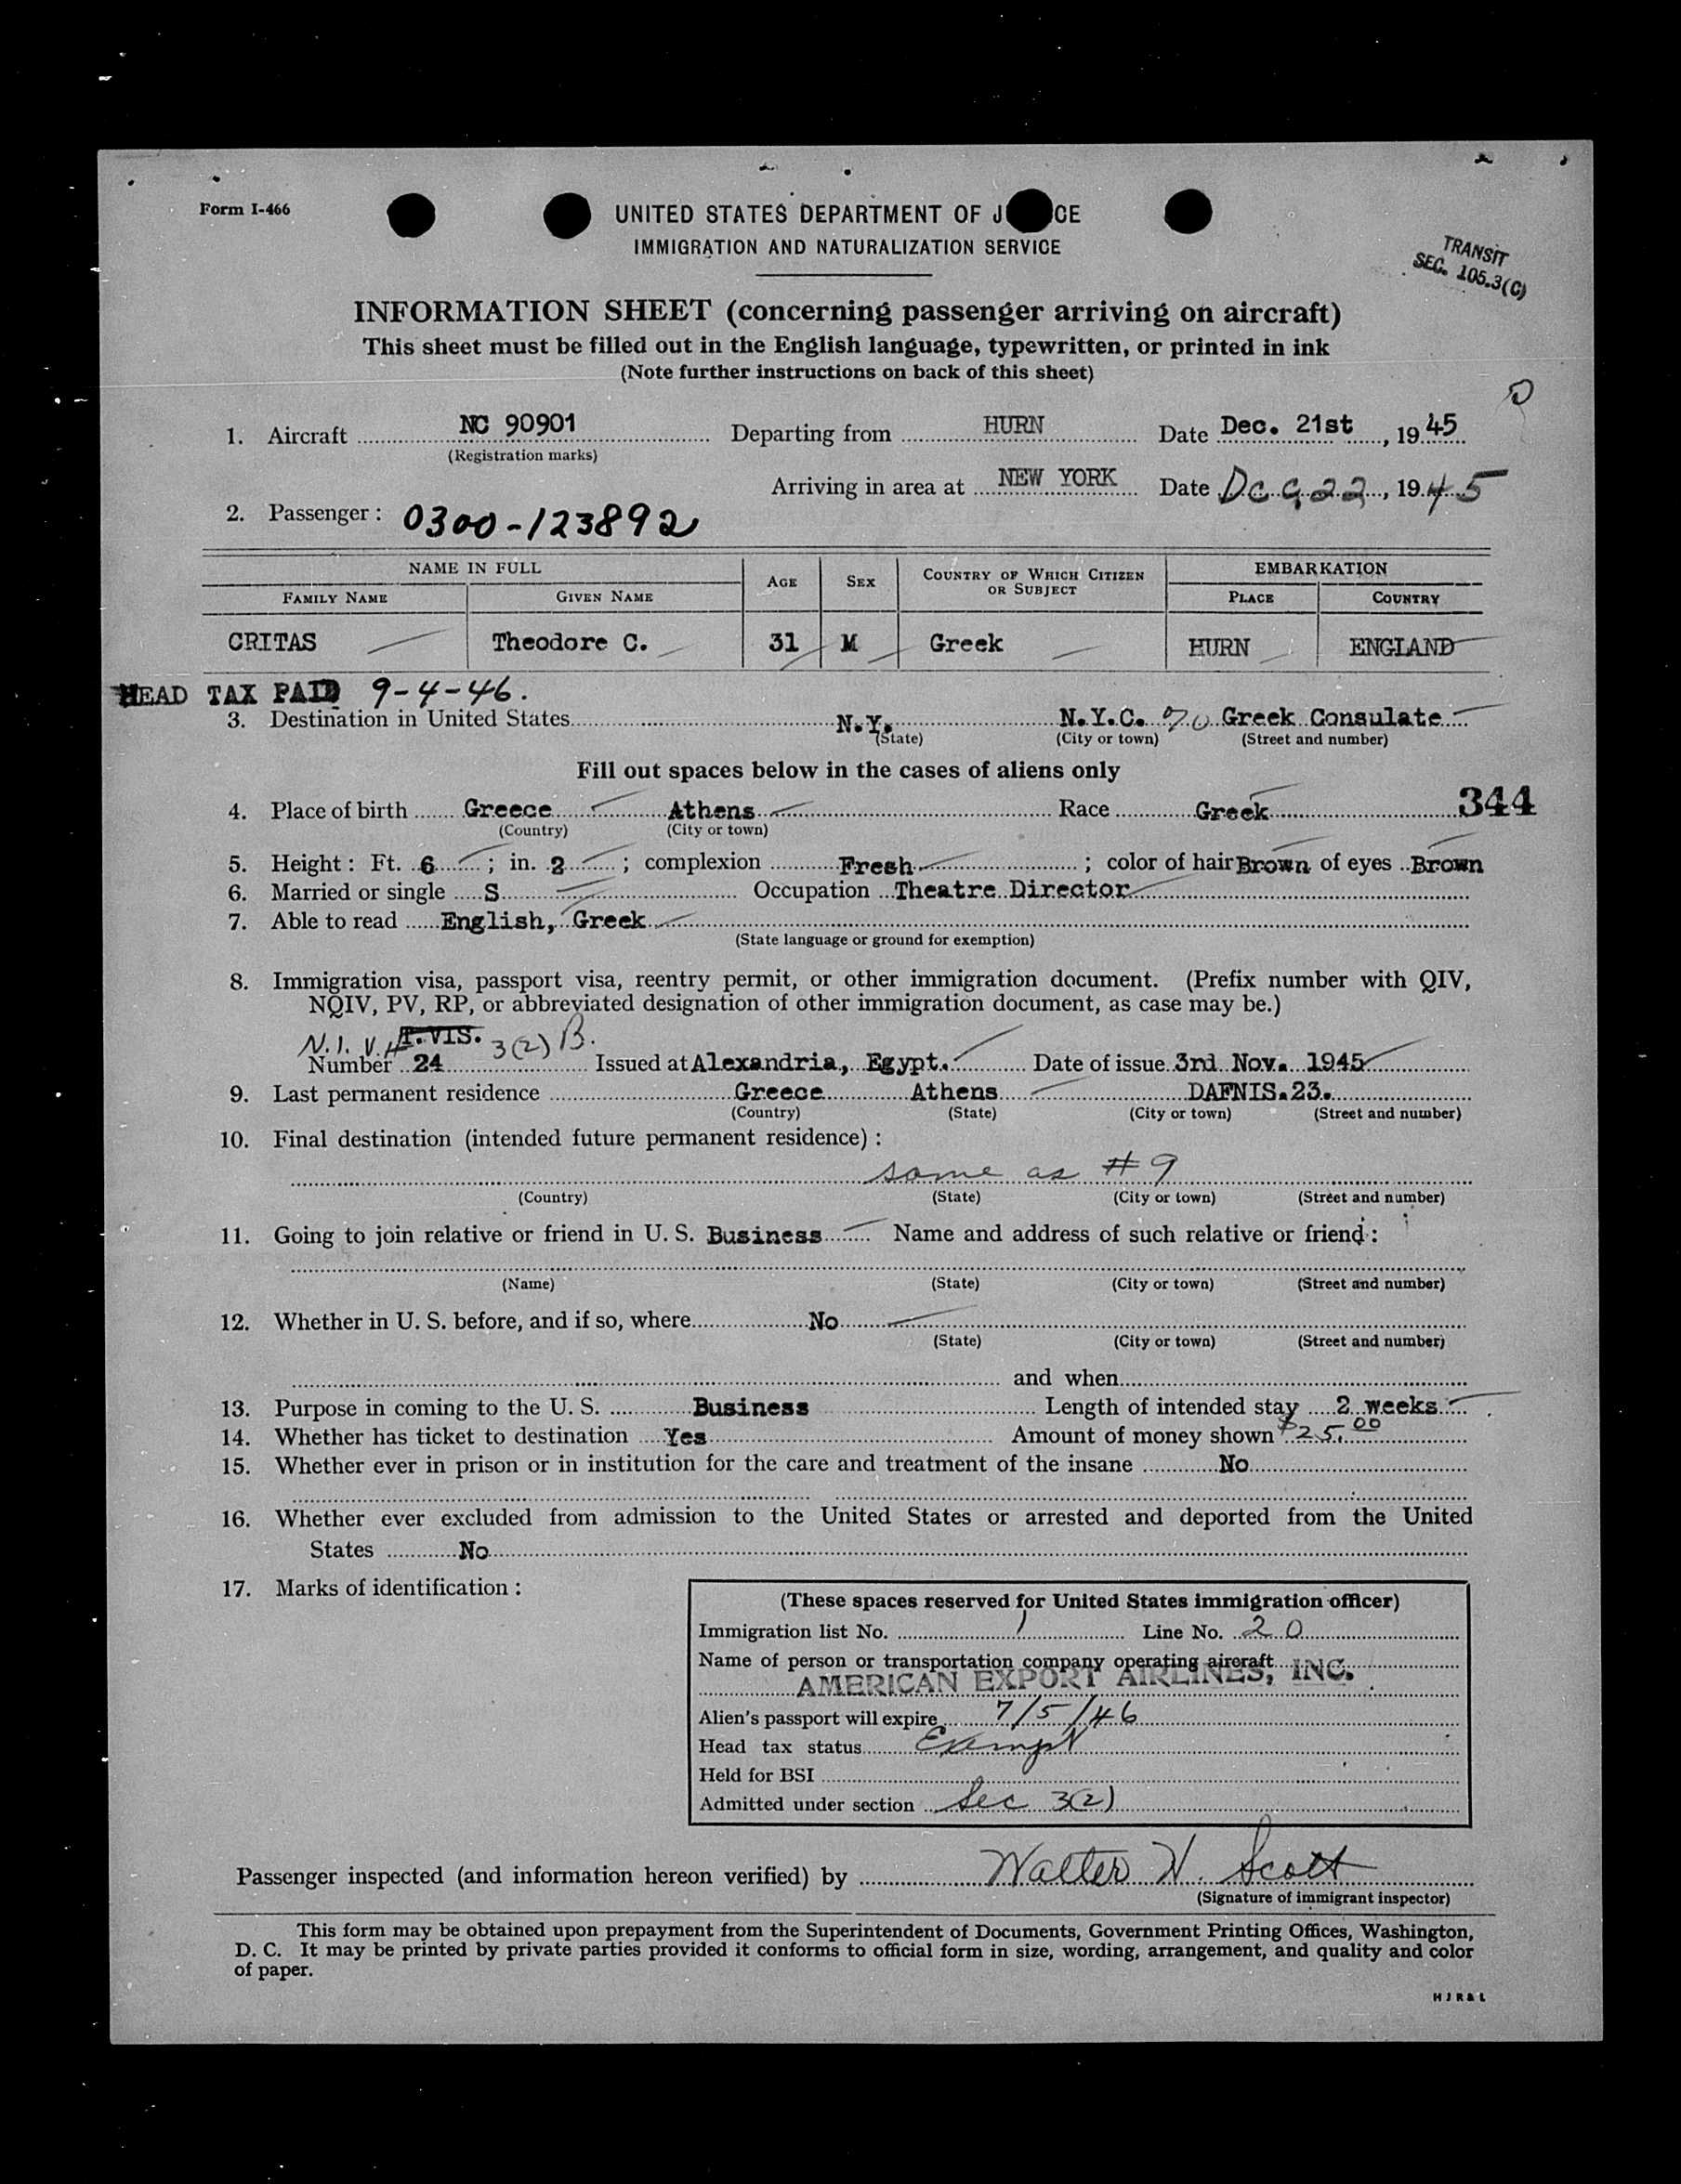 Form I-466
UNITED STATES DEPARTMENT OF J CE
IMMIGRATION AND NATURALIZATION SERVICE
TRANSIT
SEC. 105.3(C)
INFORMATION SHEET (concerning passenger arriving on aircraft)
This sheet must be filled out in the English language, typewritten, or printed in ink
(Note further instructions on back of this sheet)
1. Aircraft NC 90901 Departing from HURN Date Dec. 21st, 1945
(Registration marks)
Arriving in area at NEW YORK Date 22, 1945
2. Passenger: 0300-123892
NAME IN FULL AGE SEX COUNTRY OF WHICH CITIZEN OR SUBJECT EMBARKATION
FAMILY NAME GIVEN NAME PLACE COUNTRY
CRITAS Theodore C. 31 M Greek HURN ENGLAND
HEAD TAX PAID 9-4-46.
3. Destination in United States N.Y. N.Y.C. Greek Consulate
(State) (City or town) (Street and number)
Fill out spaces below in the cases of aliens only
4. Place of birth Greece Athens Race Greek 344
(Country) (City or town)
5. Height: Ft. 6; in. 2; complexion Fresh; color of hair Brown of eyes Brown
6. Married or single S Occupation Theatre Director
7. Able to read English, Greek
(State language or ground for exemption)
8. Immigration visa, passport visa, reentry permit, or other immigration document. (Prefix number with QIV,
NQIV, PV, RP, or abbreviated designation of other immigration document, as case may be.)
N.I.V. # T.VIS. 3(2) B.
Number 24 Issued at Alexandria, Egypt. Date of issue 3rd Nov. 1945
9. Last permanent residence Greece Athens DAFNIS.23.
(Country) (State) (City or town) (Street and number)
10. Final destination (intended future permanent residence):
same as #9
(Country) (State) (City or town) (Street and number)
11. Going to join relative or friend in U. S. Business Name and address of such relative or friend:
(Name) (State) (City or town) (Street and number)
12. Whether in U. S. before, and if so, where No
(State) (City or town) (Street and number)
and when
13. Purpose in coming to the U. S. Business Length of intended stay 2 weeks
14. Whether has ticket to destination Yes Amount of money shown $25.00
15. Whether ever in prison or in institution for the care and treatment of the insane No
16. Whether ever excluded from admission to the United States or arrested and deported from the United
States No
17. Marks of identification:
(These spaces reserved for United States immigration officer)
Immigration list No. 1 Line No. 20
Name of person or transportation company operating aircraft
AMERICAN EXPORT AIRLINES, INC.
Alien's passport will expire 7/5/46
Head tax status Exempt
Held for BSI
Admitted under section Sec 3(2)
Passenger inspected (and information hereon verified) by Walter H. Scott
(Signature of immigrant inspector)
This form may be obtained upon prepayment from the Superintendent of Documents, Government Printing Offices, Washington,
D. C. It may be printed by private parties provided it conforms to official form in size, wording, arrangement, and quality and color
of paper.
HJR&L